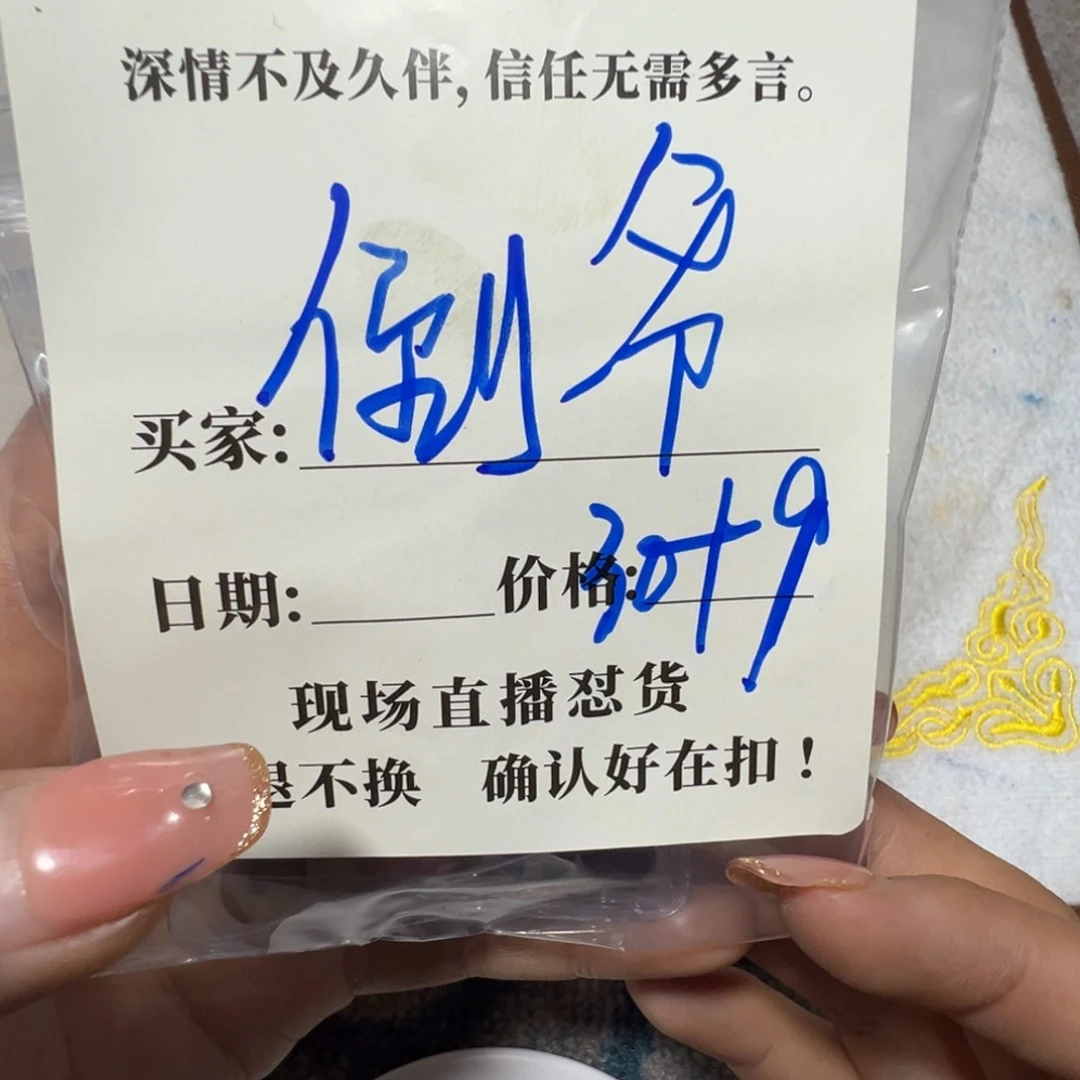 深情不及久伴,信任无需多言。
买家:倒爷
日期:价格:30+9
现场直播怼货
退不换 确认好在扣!